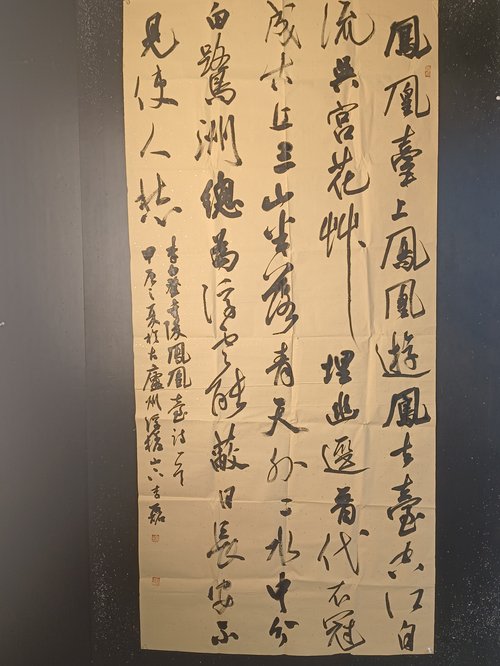 鳳凰臺上鳳凰遊鳳去臺空江自
流吳宮花艸埋幽逕晉代衣冠
成古丘三山半落青天外二水中分
白鷺洲總為浮雲能蔽日長安不
見使人愁
李白登金陵鳳凰臺詩一首
甲辰之夏於古廬州浮槎山李磊